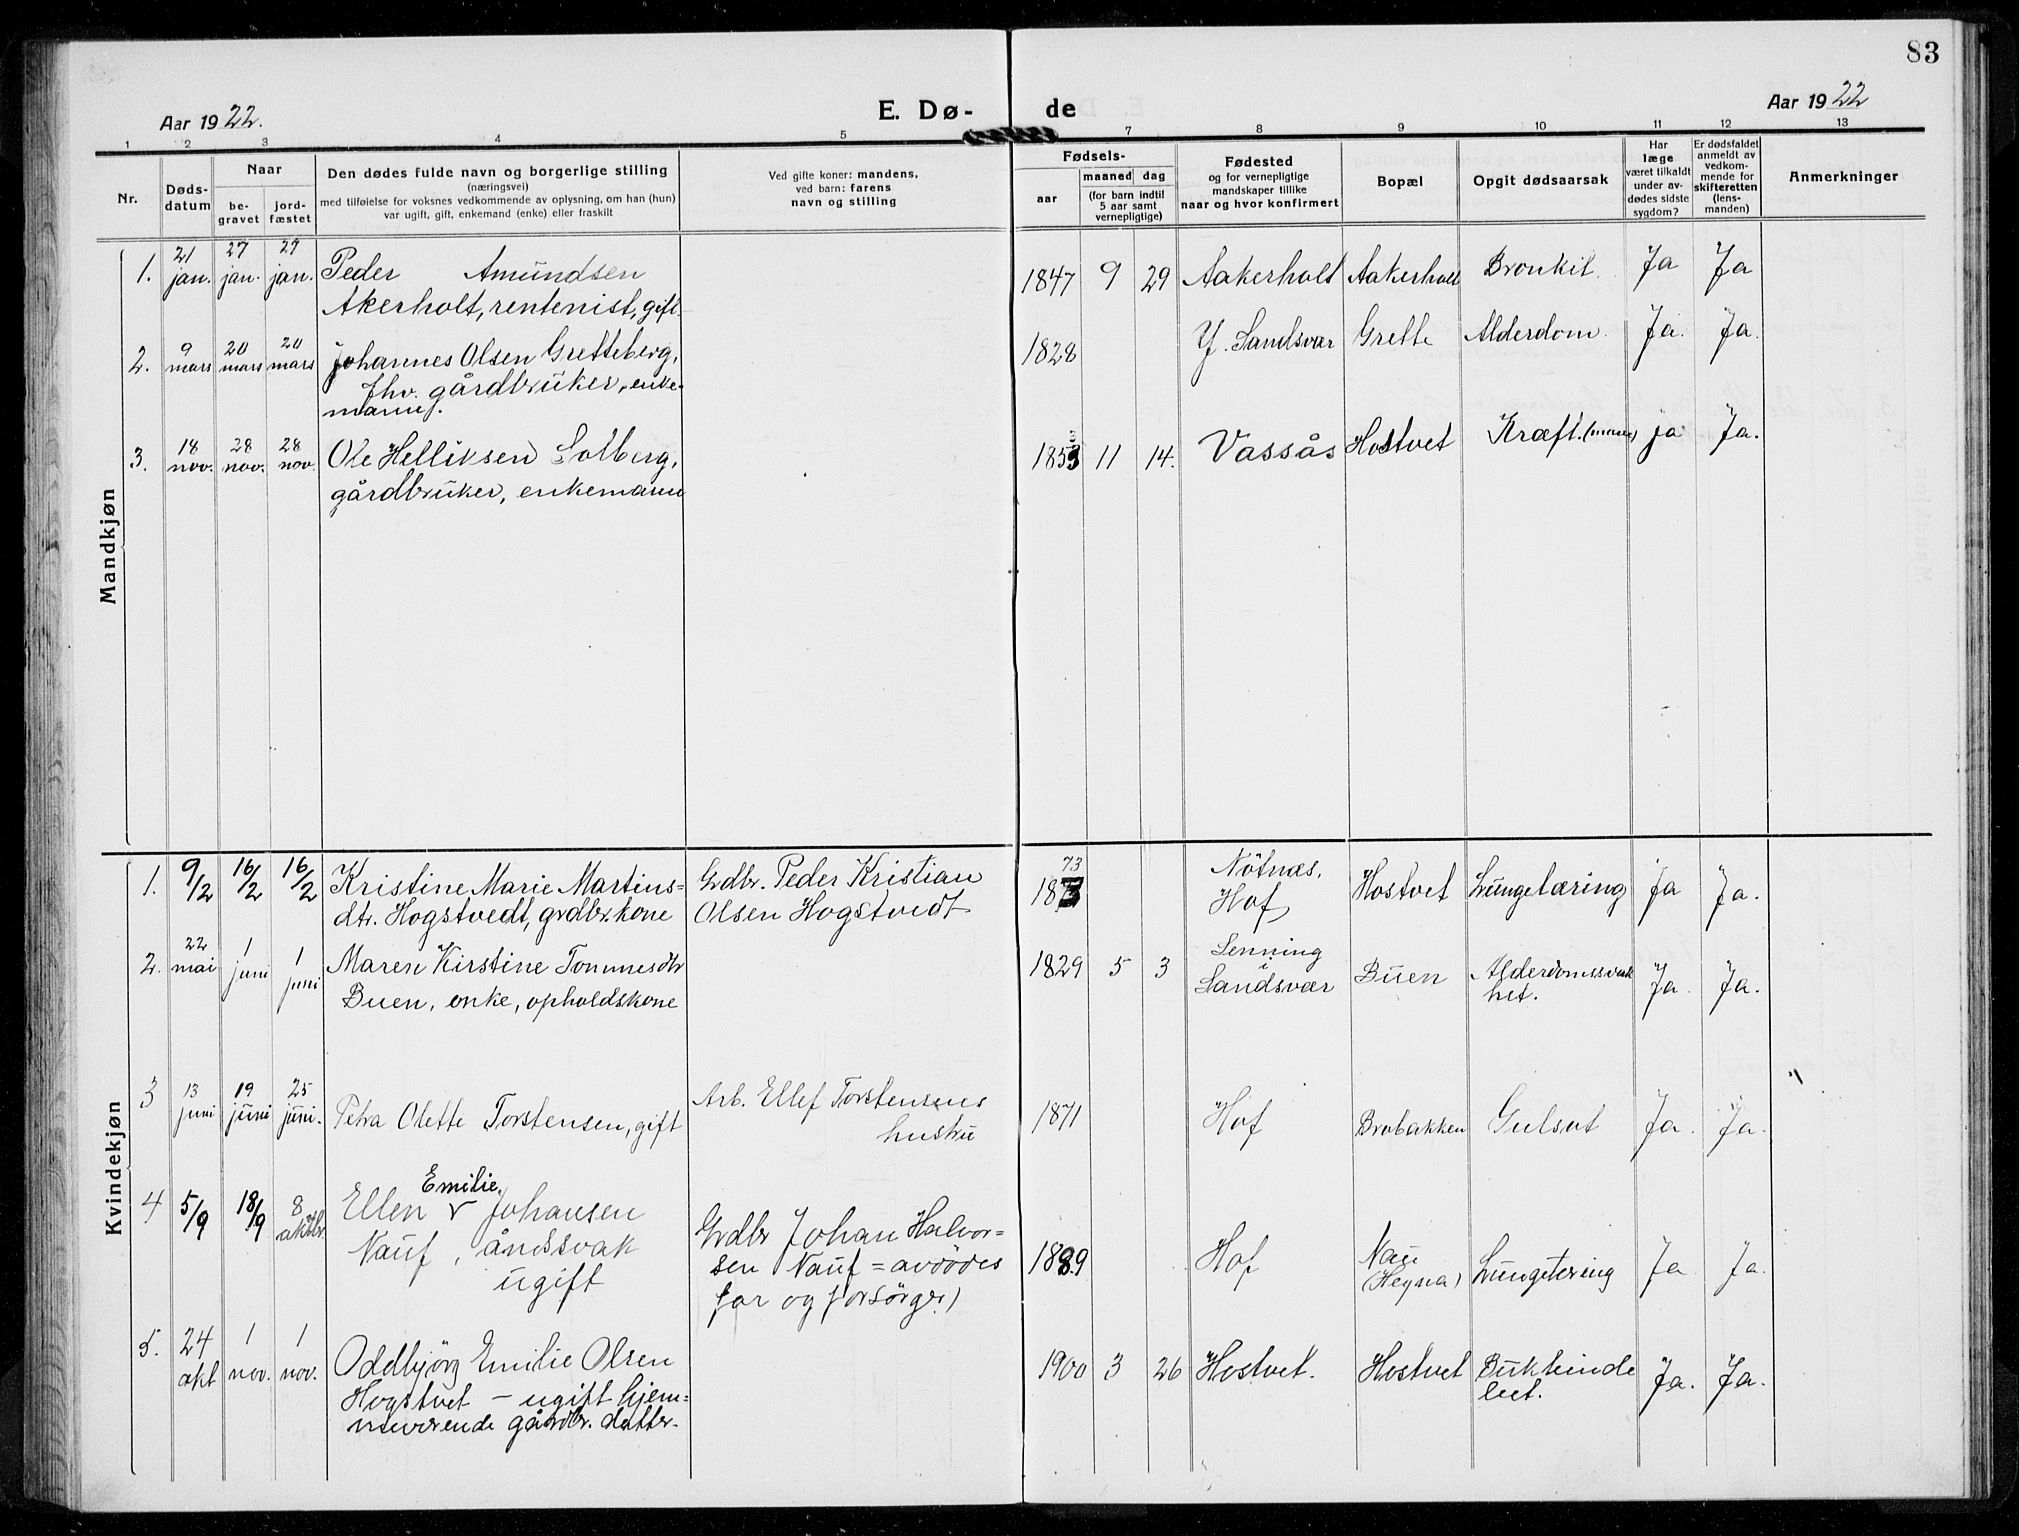 83
Aar 1922.
E. Dø-
de
Aar 1922
1 2 3 4 5 7 8 9 10 11 12 13
Nr.
Døds-
datum
Naar
be-
gravet
jord-
fæstet
Den dødes fulde navn og borgerlige stilling
(næringsvei)
med tilføielse for voksnes vedkommende av oplysning, om han (hun)
var ugift, gift, enkemand (enke) eller fraskilt
Ved gifte koner: mandens,
ved barn: farens
navn og stilling
Fødsels-
aar
maaned dag
(for barn indtil
5 aar samt
vernepligtige)
Fødested
og for vernepligtige
mandskaper tillike
naar og hvor konfirmert
Bopæl
Opgit dødsaarsak
Har
læge
været tilkaldt
under av-
dødes sidste
sygdom?
Er dødsfaldet
anmeldt av
vedkom-
mende for
skifteretten
(lens-
manden)
Anmerkninger
Mandkjøn
1. 21 jan. 27 jan. 27 jan. Peder Amundsen
Akerholt, rentenist, gift
1847 9 29 Aakerholt Aakerholt Bronkit. Ja Ja
2. 9 mars 20 mars 20 mars Johannes Olsen Gretteberg,
fhv. gårdbruker, enke-
mann.
1828 Y. Sandsvær Grette Alderdom. Ja. Ja.
3. 18 nov. 28 nov. 28 nov. Ole Helliksen Solberg,
gårdbruker, enkemann
1853 11 14. Vassås Hostvet Kræft. (mave) ja Ja.
Kvindekjøn
1. 9/2 16/2 16/2 Kristine Marie Martins=
dtr. Hogstvedt, grdbr.kone
Grdbr. Peder Kristian
Olsen Hogstvedt
73
1873 Nötnæs,
Hof Hostvet Lungetæring ja Ja.
2. 22 mai 1 juni 1 juni Maren Kirstine Tommesdtr
Buen, enke, opholdskone
1829 5 3 Senning
i
Sandsvær Buen Alderdomssvak
het. Ja. Ja.
3 13 juni 19 juni 25 juni. Petra Olette Torstensen, gift
Arb. Ellef Torstensens
hustru
1871 Hof Brobakken Gulsot Ja. Ja.
4 5/9 18/9 8 oktbr. Emilie
Ellen v Johansen
Nauf, åndssvak
ugift
Grdbr Johan Halvor=
sen Nauf = avdödes
far og forsörger)
1889 Hof Nau
(Heyna) Lungetering Ja Ja.
5. 24 okt 1 nov. 1 nov. Oddbjörg Emilie Olsen
Hogstvet – ugift hjem=
meværende gårdbr. datter.
1900 3 26 Hostvet. Hostvet Bukhinde
bet. Ja. Ja.